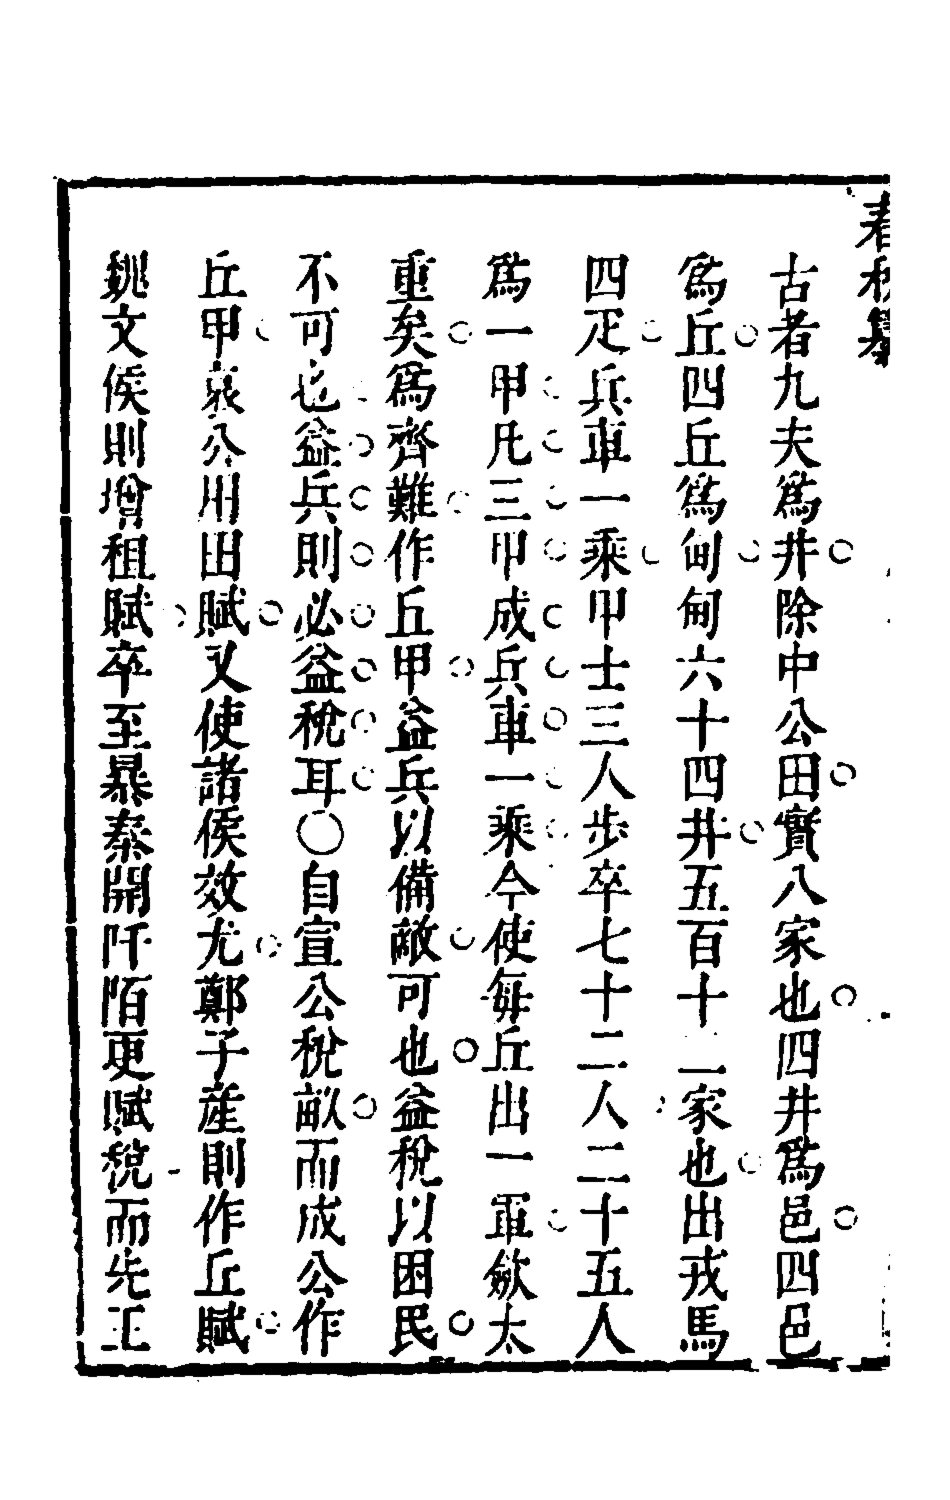 春秋纂
古者九夫爲井除中公田實八家也四井爲邑四邑
爲丘四丘爲甸甸六十四井五百十二家也出戎馬
四疋兵車一乘甲士三人步卒七十二人二十五人
爲一甲凡三甲成兵車一乘今使每丘出一軍斂太
重矣爲齊難作丘甲益兵以備敵可也益稅以困民
不可也益兵則必益稅耳〇自宣公稅畝而成公作
丘甲哀公用田賦又使諸侯效尤鄭子產則作丘賦
魏文侯則增租賦卒至暴秦開阡陌更賦稅而先王